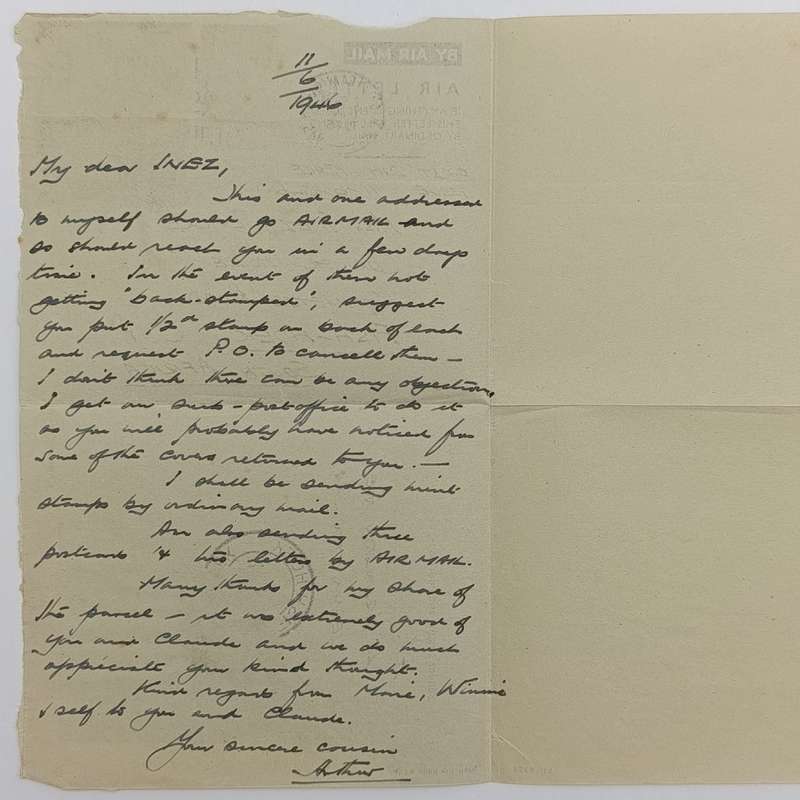 11
6
1946
My dear INEZ,
This and one addressed
to myself should go AIRMAIL and
so should reach you in a few days
time. In the event of them not
getting "back-stamped", suggest
you put 1/2d stamp on back of each
and request P.O. to cancell them —
I don't think there can be any objection,
I get our sub-post office to do it
as you will probably have noticed from
some of the covers returned to you. —
I shall be sending mint
stamps by ordinary mail.
Am also sending three
postcards & two letters by AIRMAIL.
Many thanks for my share of
the parcel — it was extremely good of
you and Claude and we do much
appreciate your kind thought.
Kind regards from Marie, Winnie
& self to you and Claude.
Your sincere cousin
Arthur
BY AIR MAIL
AIR LETTER